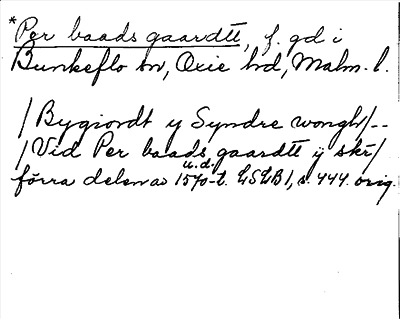 *Per baads gaardtt, f. gd i
Bunkeflo sn, Oxie hd, Malm. l.
/Bygiordt y Syndre wongh/--
/Vid Per baads gaardtt ÿ skr/
u.d.
förra delen av 1570-t. LSLB 1, s. 444. orig.